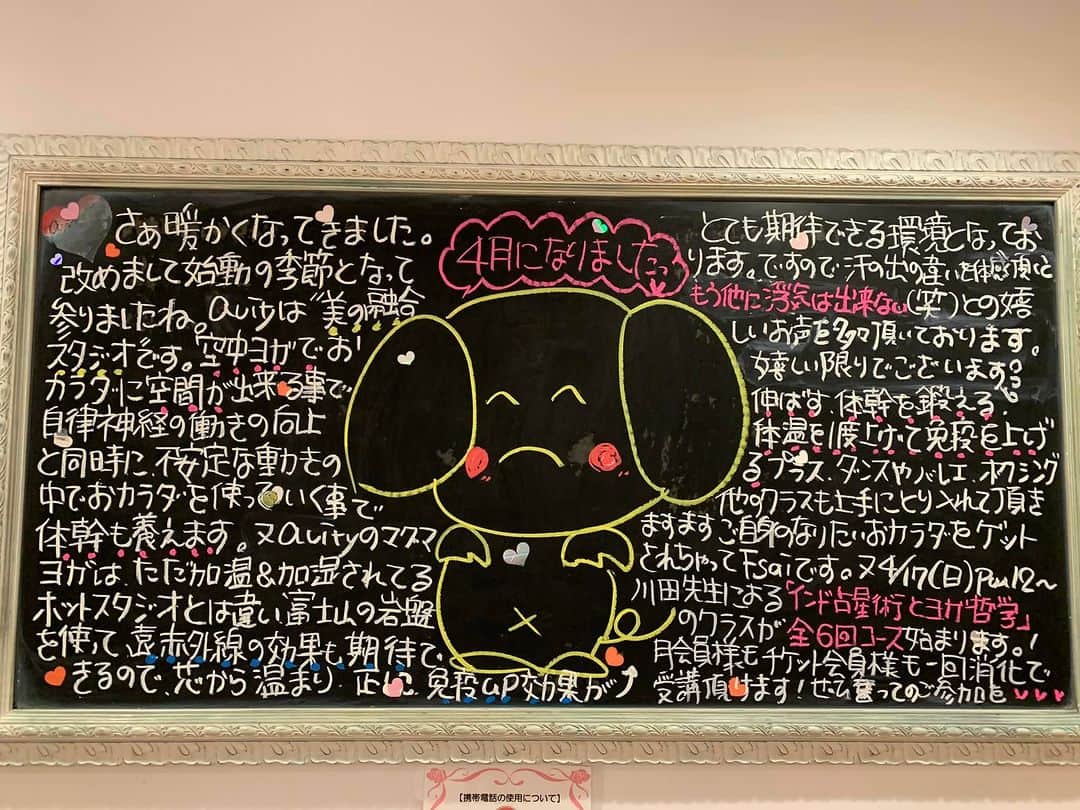 さぁ暖かくなってきました。
改めまして始動の季節となって
参りましたね。auityは"美の融合
スタジオです。空中ヨガでお
カラダに空間が出来る事で
自律神経の働きの向上
と同時に、不安定な動きの
中でおカラダを使っていく事で
体幹も養えます。又auityのマグマ
ヨガは、ただ加温&加湿されてる
ホットスタジオとは違い富士山の岩盤
を使って、遠赤外線の効果も期待で
きるので、芯から温まり正に、免疫up効果が
4月になりましたっ
とても期待できる環境となってお
ります。ですので汗の出の違いを体感頂くと
もう他に浮気は出来ない(笑)との嬉
しいお声を多々頂いております。
嬉しい限りでございます。
伸ばす、体幹を鍛える、
体温を1度上げて免疫を上げ
るプラス、ダンスやバレエ、ボクシング
他のクラスも上手にとり入れて頂き
ますますご自身のなりたいおカラダをゲット
されちゃって下saiです。又4/17(日)Pm12〜
川田先生による「インド占星術とヨガ哲学」
のクラスが全6回コース始まります。!
月会員様もチケット会員様も一回消化で
受講頂けます!ぜひ奮ってのご参加を
【携帯電話の使用について】